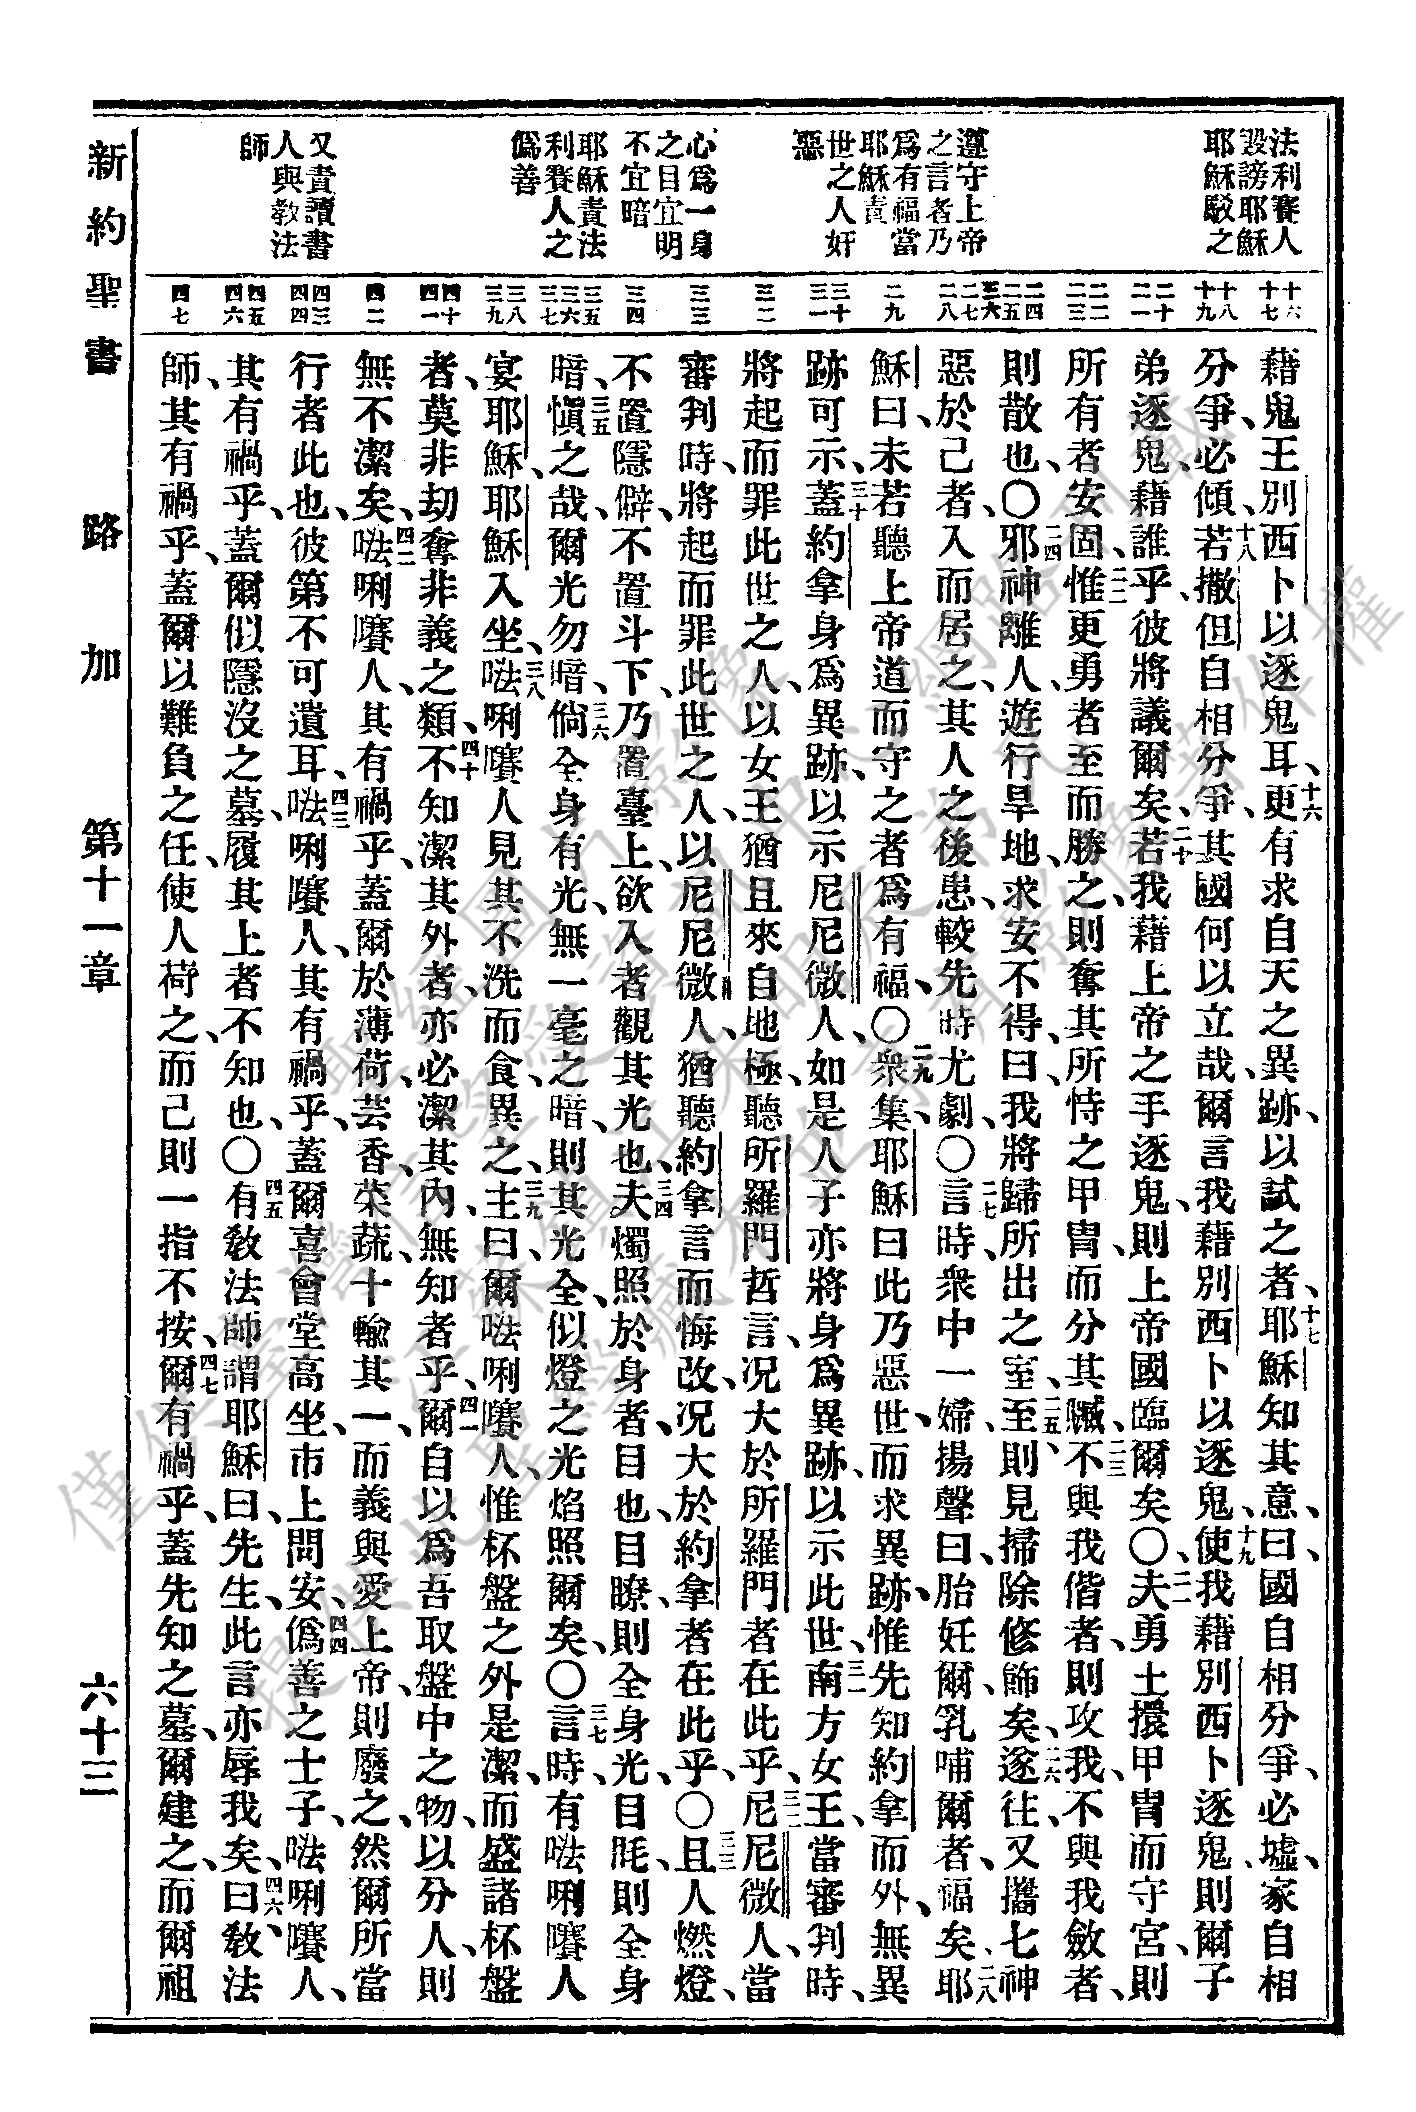 法利賽人
毀謗耶穌
耶穌駁之
遵守上帝
之言者乃
為有福當
耶穌責
世之人奸
惡
心為一身
之目宜明
不宜暗
耶穌責法
利賽人之
偽善
又責讀書
人與教法
師
十六
十七
十八
十九
二十
二一
二二
二三
二四
二五
二六
二七
二八
二九
三十
三一
三二
三三
三四
三五
三六
三七
三八
三九
四十
四一
四二
四三
四四
四五
四六
四七
藉鬼王別西卜以逐鬼耳、十六更有求自天之異跡、以試之者、十七耶穌知其意、曰、國自相分爭、必墟、家自相
分爭、必傾、十八若撒但自相分爭、其國何以立哉、爾言我藉別西卜以逐鬼、十九使我藉別西卜逐鬼、則爾子
弟逐鬼、藉誰乎、彼將議爾矣、二十若我藉上帝之手逐鬼、則上帝國臨爾矣〇二一夫勇士擐甲冑而守宮、則
所有者安固、二二惟更勇者至而勝之、則奪其所恃之甲冑、而分其贓、二三不與我偕者、則攻我、不與我斂者、
則散也、〇二四邪神離人、遊行旱地、求安不得、曰、我將歸所出之室、二五至、則見掃除修飾矣、二六遂往、又攜七神
惡於己者、入而居之、其人之後患、較先時尤劇、〇二七言時、衆中一婦揚聲曰、胎妊爾、乳哺爾者、福矣、二八耶
穌曰、未若聽上帝道而守之者、為有福、〇二九衆集、耶穌曰、此乃惡世、而求異跡、惟先知約拿而外、無異
跡可示、三十蓋約拿身為異跡、以示尼尼微人、如是、人子亦將身為異跡、以示此世、三一南方女王、當審判時、
將起而罪此世之人、以女王猶且來自地極、聽所羅門哲言、况大於所羅門者在此乎、三二尼尼微人、當
審判時、將起而罪此世之人、以尼尼微人、猶聽約拿言而悔改、况大於約拿者在此乎、〇三三且人燃燈、
不置隱僻、不置斗下、乃置臺上、欲入者觀其光也、三四夫燭照於身者、目也、目瞭、則全身光、目眊、則全身
暗、三五愼之哉、爾光勿暗、三六倘全身有光、無一毫之暗、則其光全、似燈之光焰照爾矣、〇三七言時、有㗲唎㘔人
宴耶穌、耶穌入坐、三八㗲唎㘔人見其不洗而食、異之、三九主曰、爾㗲唎㘔人、惟杯盤之外是潔、而盛諸杯盤
者、莫非刧奪非義之類、四十不知潔其外者、亦必潔其內、無知者乎、四一爾自以為吾取盤中之物、以分人、則
無不潔矣、四二㗲唎㘔人、其有禍乎、蓋爾於薄荷、芸香、菜蔬、十輸其一、而義與愛上帝、則廢之、然爾所當
行者此也、彼第不可遺耳、四三㗲唎㘔人、其有禍乎、蓋爾喜會堂高坐、市上問安、四四偽善之士子、㗲唎㘔人、
其有禍乎、蓋爾似隱沒之墓、履其上者不知也、〇四五有教法師謂耶穌曰、先生、此言亦辱我矣、四六曰、教法
師、其有禍乎、蓋爾以難負之任、使人荷之、而己則一指不按、四七爾有禍乎、蓋先知之墓、爾建之、而爾祖
新約聖書　路加　第十一章　六十三